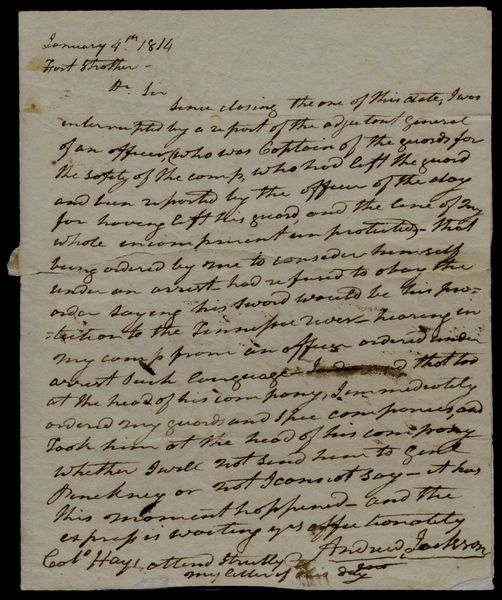 January 4th 1814
Fort Strother -
Dr Sir
Since closing the one of this date, I was
interrupted by a report of the adjutant general
of an officer, (who was Captain of the guards for
the safety of the camp, who had left the guard
and been reported by the officer of the day
for having left his guard, and the line of my
whole incampment unprotected - that
being ordered by me to consider himself
under an arrest had refused to obay the
order saying his sword would be his pro-
-tection to the Tennessee river - hearing in
my camp from an officer ordered under
arrest such language - and that too
at the head of his company, I immediately
ordered my guards and companies, and
Took him at the head of his company
whether I will not send him to Genl
Pinckney or not I cannot say - it has
this moment happened - and the
express is waiting yrs affectionately
Andrew Jackson
Colo Hays, attend strictly to
my letter of this day